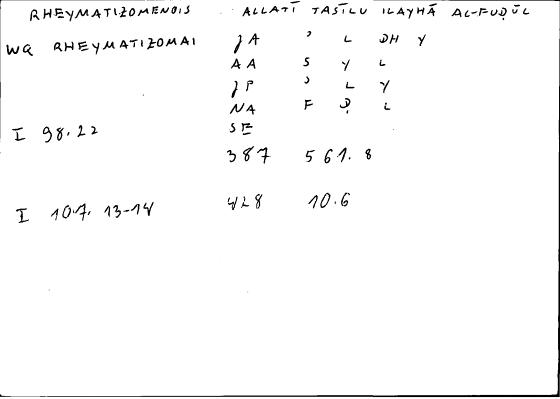 RHEYMATIZOMENOIS ALLATĪ TASĪLU ILAYHĀ AL-FUḌŪL
WQ RHEYMATIZOMAI JA ' L DH Y
AA S Y L
JP ' L Y
NA F Ḍ L
I 98.22 SE
387 561.8
I 107.13-14 428 10.6